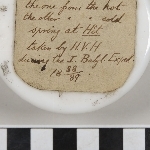 the one from the hot
the other " " cold
spring at Hit
taken by H V H
during the I. Babyl. Exped.
18 88/89